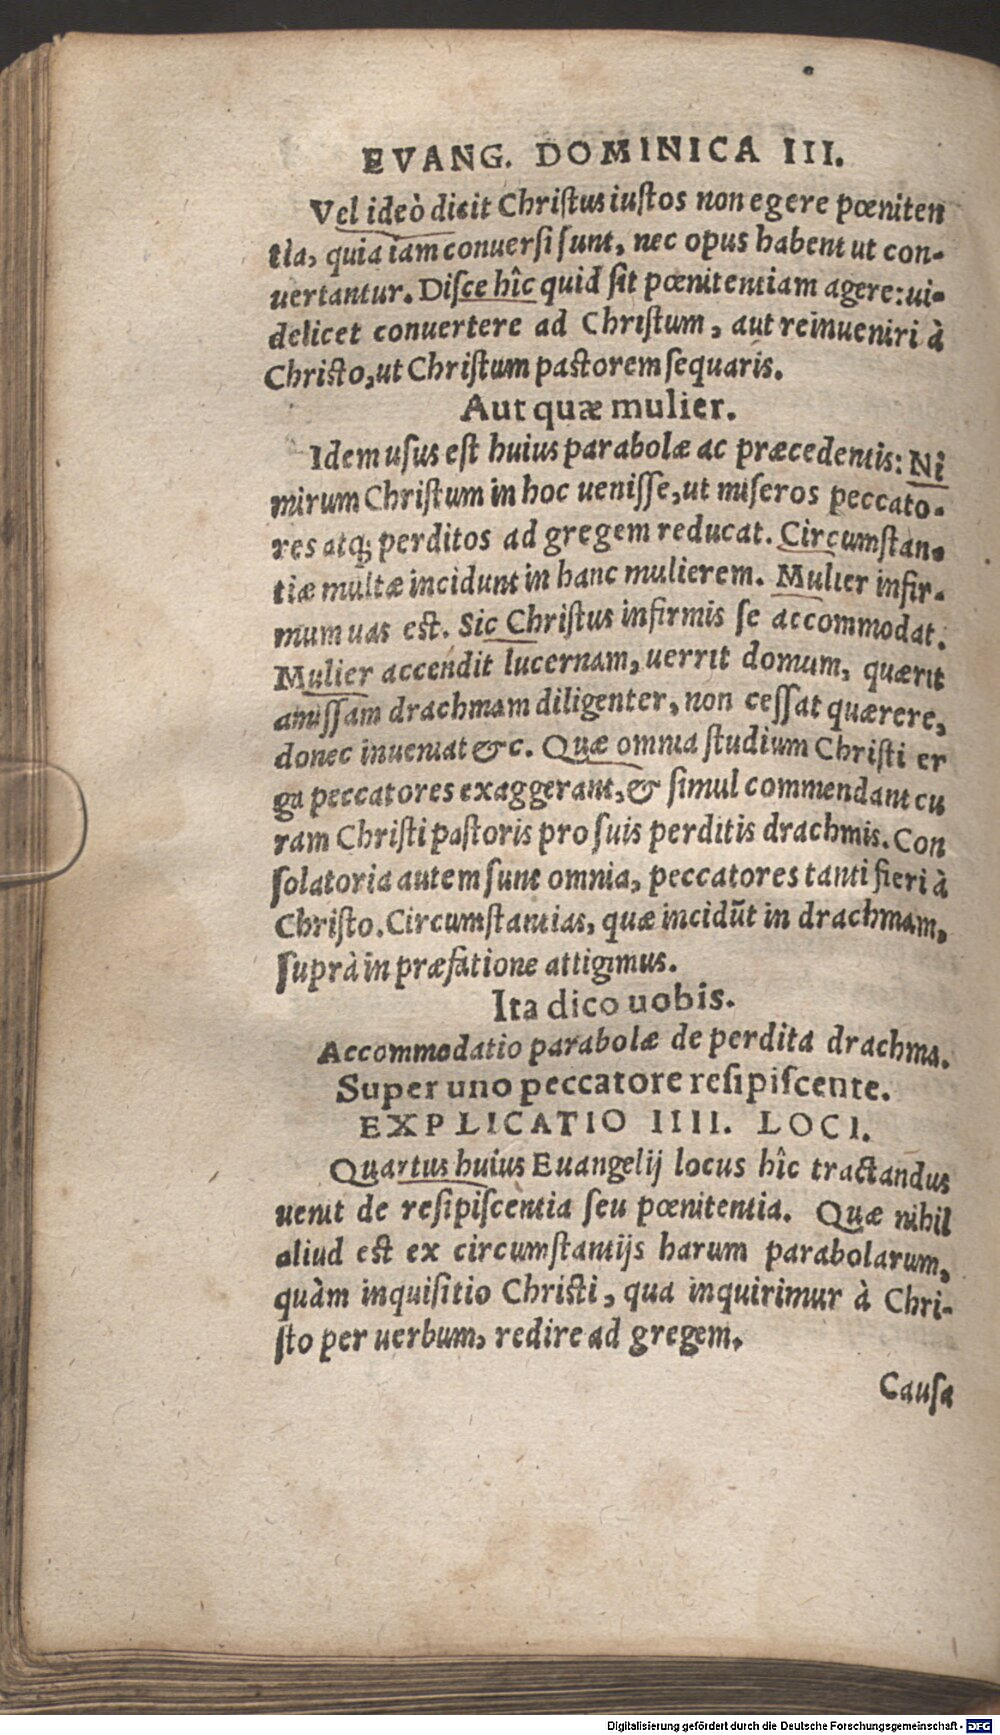 EVANG. DOMINICA III.
Vel ideò dicit Chriſtus iuſtos non egere pœniten
tia, quia iam conuerſi ſunt, nec opus habent ut con-
uertantur. Diſce hîc quid ſit pœnitentiam agere: ui-
delicet conuertere ad Chriſtum, aut reinueniri à
Chriſto, ut Chriſtum paſtorem ſequaris.
Aut quæ mulier.
Idem uſus eſt huius parabolæ ac præcedentis: Ni
mirum Chriſtum in hoc ueniſſe, ut miſeros peccato-
res atq; perditos ad gregem reducat. Circumſtan-
tiæ multæ incidunt in hanc mulierem. Mulier infir-
mum uas eſt. Sic Chriſtus infirmis ſe accommodat.
Mulier accendit lucernam, uerrit domum, quærit
amiſſam drachmam diligenter, non ceſſat quærere,
donec inueniat &c. Quæ omnia ſtudium Chriſti er
ga peccatores exaggerant, & ſimul commendant cu
ram Chriſti paſtoris pro ſuis perditis drachmis. Con
ſolatoria autem ſunt omnia, peccatores tanti fieri à
Chriſto. Circumſtantias, quæ incidūt in drachmam,
ſuprà in præfatione attigimus.
Ita dico uobis.
Accommodatio parabolæ de perdita drachma.
Super uno peccatore reſipiſcente.
EXPLICATIO IIII. LOCI.
Quartus huius Euangelij locus hîc tractandus
uenit de reſipiſcentia ſeu pœnitentia. Quæ nihil
aliud eſt ex circumſtantijs harum parabolarum,
quàm inquiſitio Chriſti, qua inquirimur à Chri-
ſto per uerbum, redire ad gregem.
Cauſa
Digitalisierung gefördert durch die Deutsche Forschungsgemeinschaft - DFG